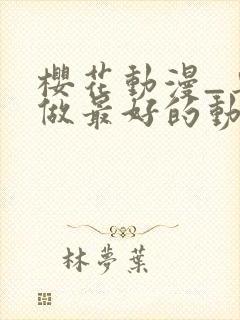 櫻花動漫_
做最好的動
林夢葉